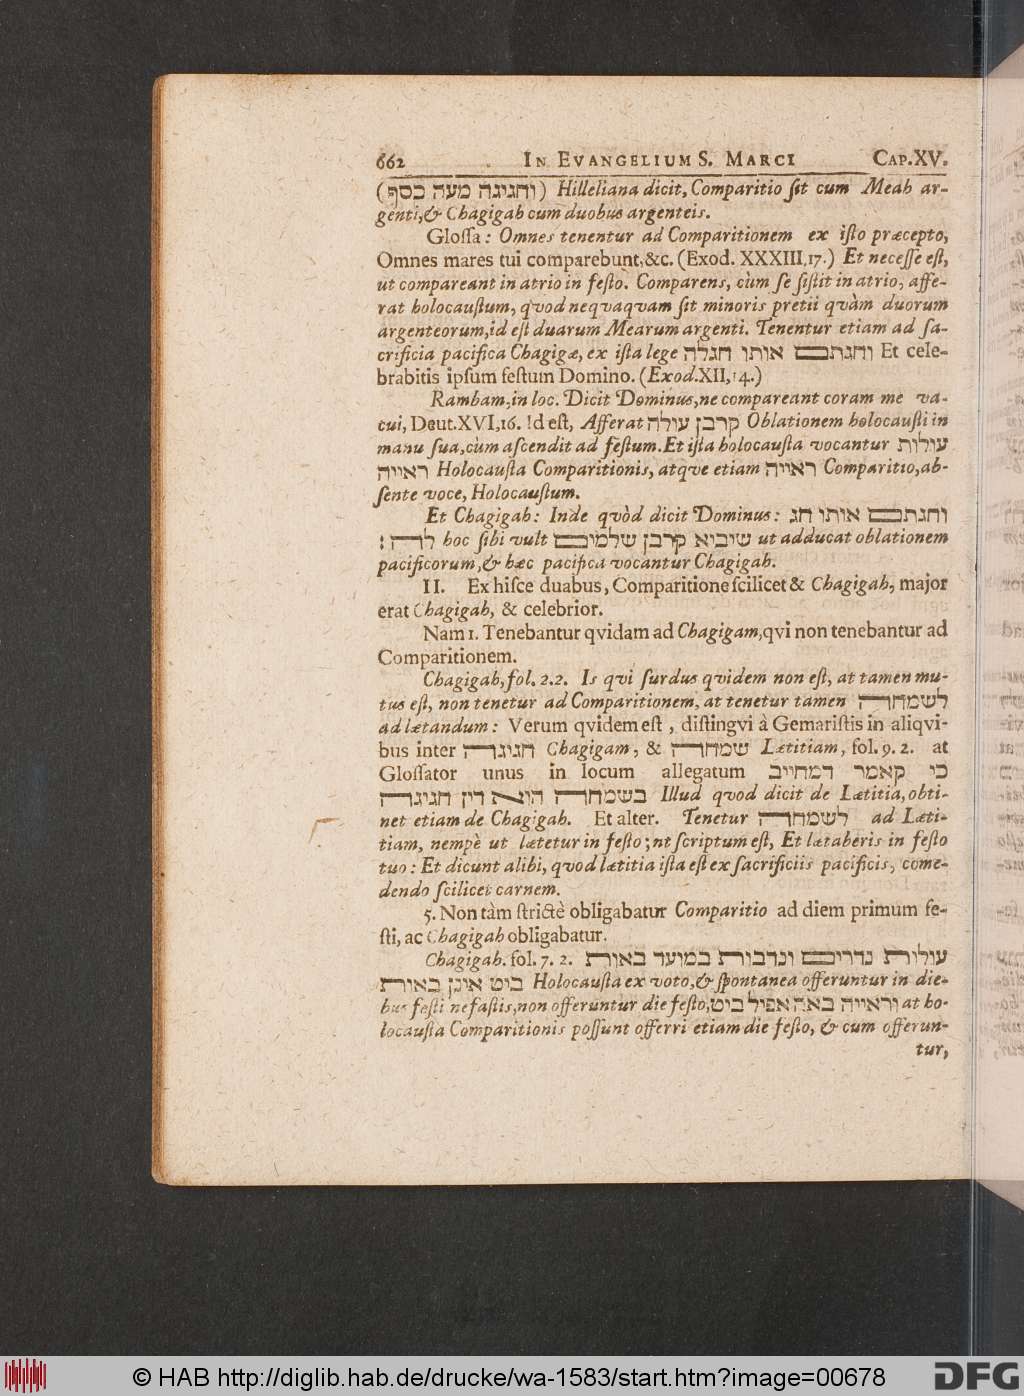 662 IN EVANGELIUM S. MARCI CAP. XV.
(וחגיגה מעה כסף) Hilleliana dicit, Comparitio ſit cum Meah ar-
genti, & Chagigah cum duobus argenteis.
Gloſſa: Omnes tenentur ad Comparitionem ex iſto præcepto,
Omnes mares tui comparebunt, &c. (Exod. XXXIII, 17.) Et neceſſe eſt,
ut compareant in atrio in feſto. Comparens, cùm ſe ſiſtit in atrio, affe-
rat holocauſtum, qvod neqvaqvam ſit minoris pretii qvàm duorum
argenteorum, id eſt duarum Mearum argenti. Tenentur etiam ad ſa-
crificia pacifica Chagigæ, ex iſta lege וחגתם אותו חגלה Et cele-
brabitis ipſum feſtum Domino. (Exod. XII, 14.)
Rambam, in loc. Dicit Dominus, ne compareant coram me va-
cui, Deut. XVI, 16. Id eſt, Afferat קרבן עולה Oblationem holocauſti in
manu ſua, cùm aſcendit ad feſtum. Et iſta holocauſta vocantur עולות
ראייה Holocauſta Comparitionis, atqve etiam ראייה Comparitio, ab-
ſente voce, Holocauſtum.
Et Chagigah: Inde qvòd dicit Dominus: וחגתם אותו חג
לה : hoc ſibi vult שיביא קרבן שלמים ut adducat oblationem
pacificorum, & hæc pacifica vocantur Chagigah.
II. Ex hiſce duabus, Comparitione ſcilicet & Chagigah, major
erat Chagigah, & celebrior.
Nam 1. Tenebantur qvidam ad Chagigam, qvi non tenebantur ad
Comparitionem.
Chagigah, fol. 2. 2. Is qvi ſurdus qvidem non eſt, at tamen mu-
tus eſt, non tenetur ad Comparitionem, at tenetur tamen לשמחה
ad lætandum: Verum qvidem eſt, diſtingvi à Gemariſtis in aliqvi-
bus inter חגיגה Chagigam, & שמחה Lætitiam, fol. 9. 2. at
Gloſſator unus in locum allegatum כי קאמר דמחייב
בשמחה הוא דין חגיגה Illud qvod dicit de Lætitia, obti-
net etiam de Chagigah. Et alter. Tenetur לשמחה ad Læti-
tiam, nempè ut lætetur in feſto; nt ſcriptum eſt, Et lætaberis in feſto
tuo: Et dicunt alibi, qvod lætitia iſta eſt ex ſacrificiis pacificis, come-
dendo ſcilicet carnem.
5. Non tàm ſtrictè obligabatur Comparitio ad diem primum fe-
ſti, ac Chagigah obligabatur.
Chagigah. fol. 7. 2. עולות נדרים ונדבות במועד באות
ביט אינן באות Holocauſta ex voto, & ſpontanea offeruntur in die-
bus feſti nefaſtis, non offeruntur die feſto, וראייה באה אפיל ביט at ho-
locauſta Comparitionis poſſunt offerri etiam die feſto, & cum offerun-
tur,
© HAB http://diglib.hab.de/drucke/wa-1583/start.htm?image=00678
DFG